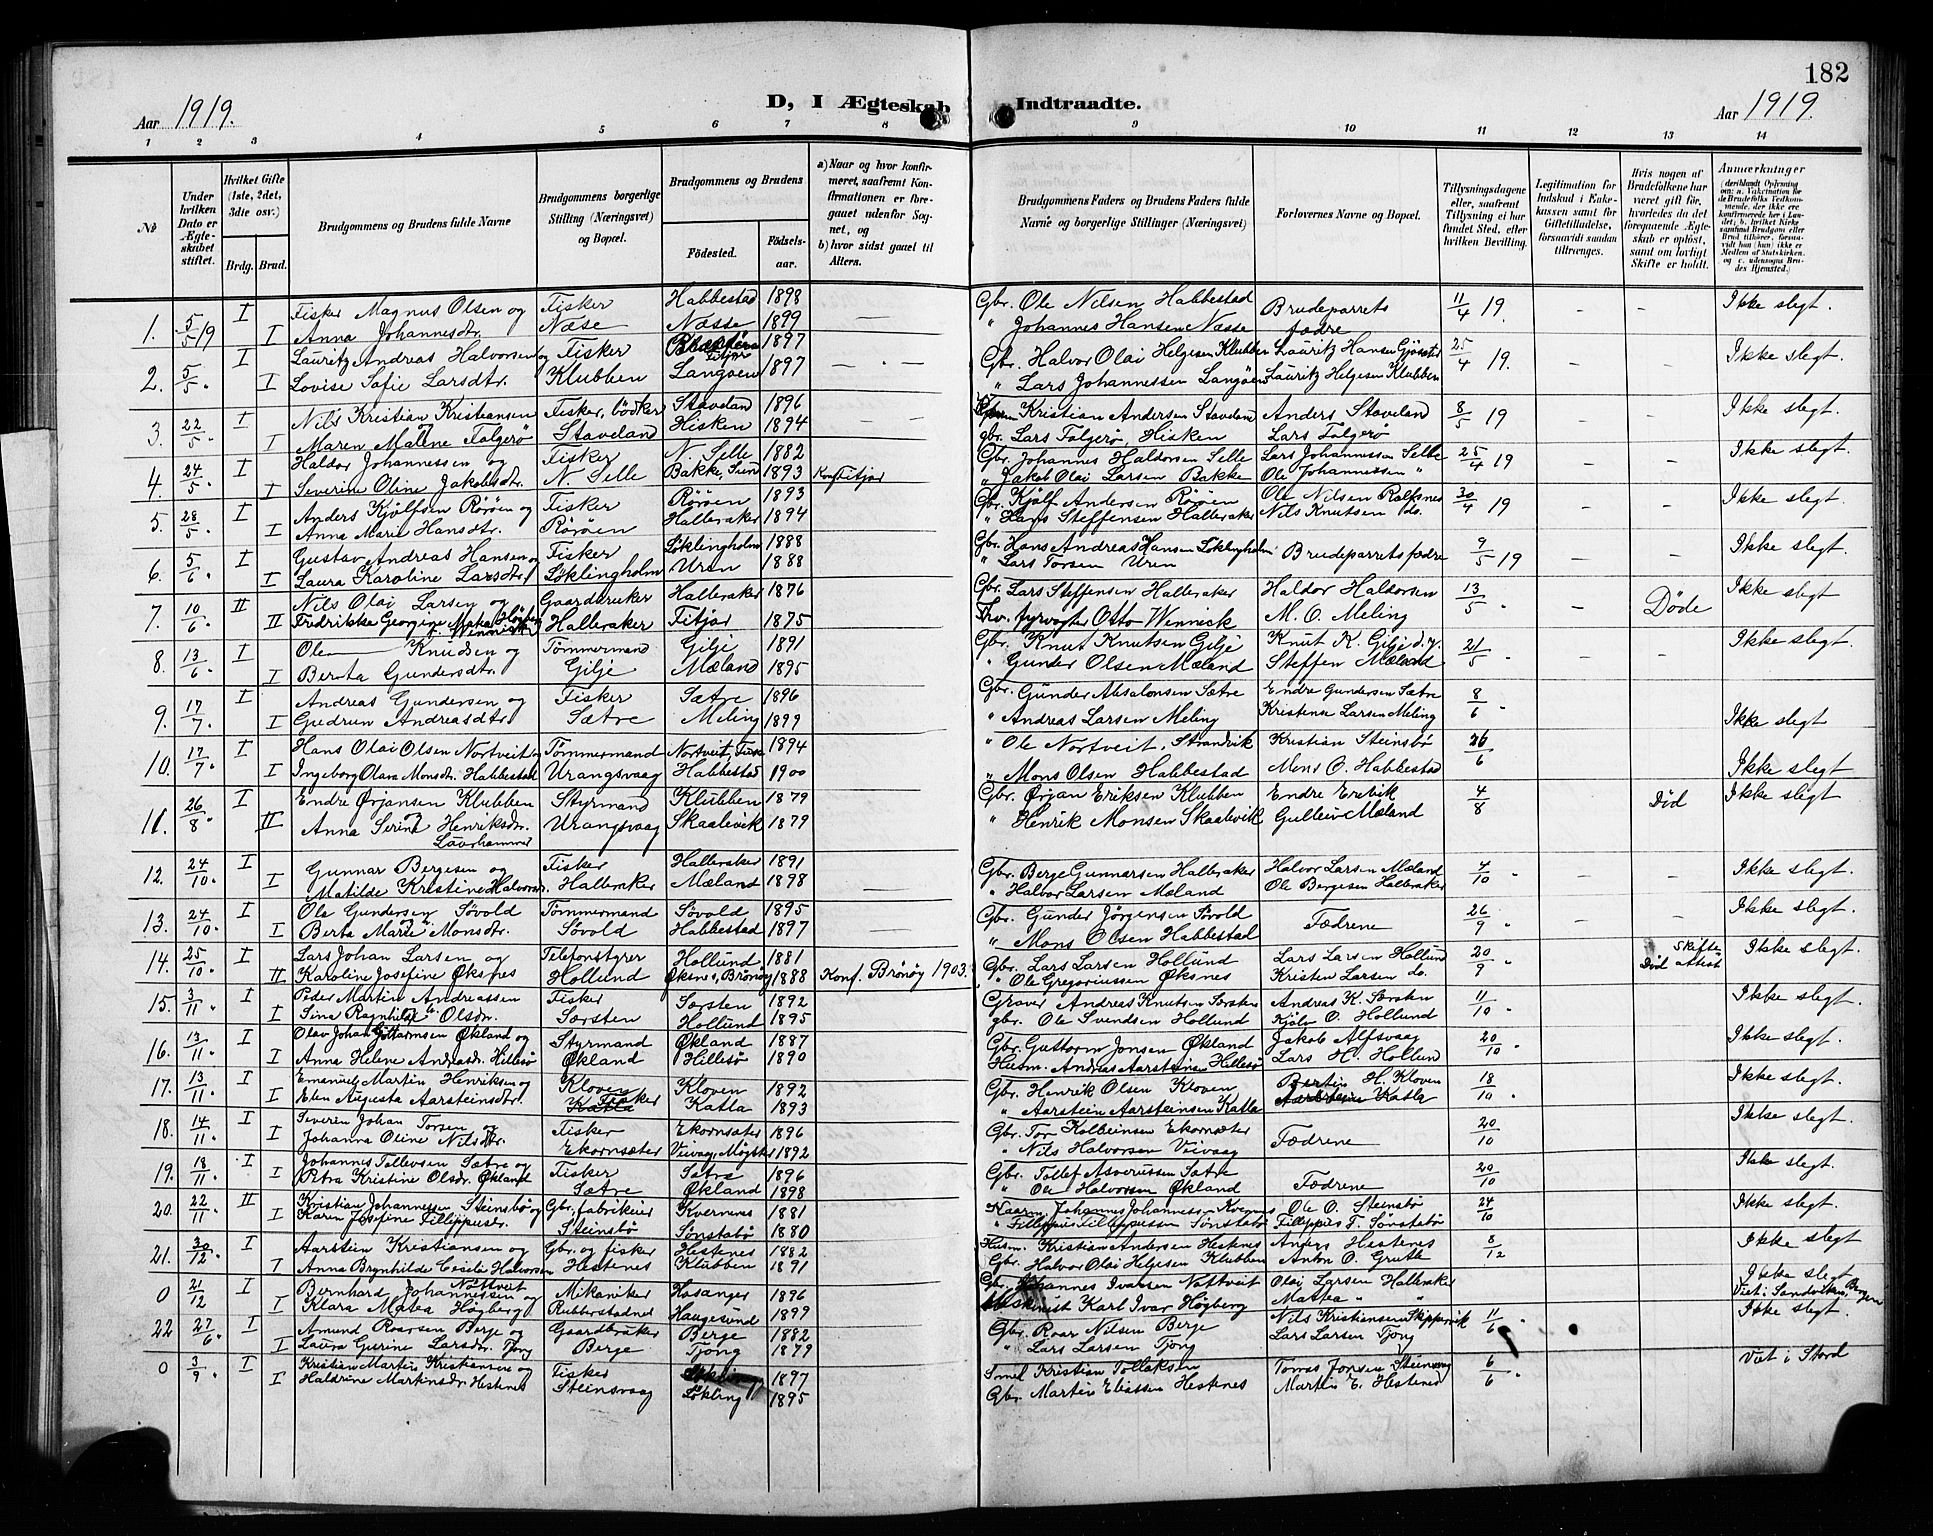 182
Aar 1919.
D, I Ægteskab Indtraadte.
Aar 1919.
1 2 3 4 5 6 7 8 9 10 11 12 13 14
№
Under hvilken Dato er Ægteskabet stiftet.
Hvilket Gifte (1ste, 2det, 3die osv.)
Brdg. Brud.
Brudgommens og Brudens fulde Navne
Brudgommens borgerlige Stilling (Næringsvei) og Bopæl.
Brudgommens og Brudens
Fødested. Fødselsaar.
a) Naar og hvor konfirmeret, saafremt Konfirmationen er foregaaet udenfor Sognet, og
b) hvor sidst gaaet til Alters.
Brudgommens Faders og Brudens Faders fulde Navne og borgerlige Stillinger (Næringsvei)
Forlovernes Navne og Bopæl.
Tillysningsdagene eller, saafremt Tillysning ei har fundet Sted, efter hvilken Bevilling.
Legitimation for Indskud i Enkekassen samt for Giftetilladelse, forsaavidt saadan tiltrænges.
Hvis nogen af Brudefolkene har været gift før, hvorledes da det foregaaende Ægteskab er opløst, samt om lovligt Skifte er holdt.
Anmærkninger
1. 5/5 19 I Fisker Magnus Olsen og Fisker Habbestad 1898 Gbr. Ole Nilsen Habbestad Brudeparrets 11/4 19. Ikke slegt.
I Anna Johannesdtr. Næse Næsse 1899 " Johannes Hansen Næsse fædre
2. 5/5 I Lauritz Andreas Halvorsen og Fisker 1897 Gbr. Halvor Olai Helgesen Klubben Lauritz Hansen 25/4 19. Ikke slegt.
I Lovise Sofie Larsdtr. Klubben Langøen 1897 " Lars Johannessen Langøen Lauritz Helgesen Klubben
3. 22/5 I Nils Kristian Kristiansen og Fisker, bödker Staveland 1896 Kristian Andersen Staveland Anders Staveland 8/5 19 Ikke slegt.
I Maren Malene Folgerø Staveland Hisken 1894 gbr. Lars Folgerø, Hisken Lars Folgerø
4. 24/5 I Haldor Johannessen og Fisker N. Selle 1882 Gbr. Johannes Haldorsen Selle Lars Johannessen Selle 25/4 19 Ikke slegt.
I Severine Oline Jakobsdtr. N. Selle Bakke, 1893 Konf. Fitjar " Jakob Olai Larsen Bakke Ole Johannessen "
5. 28/5 I Anders Kjølfsen Rörøen og Fisker Rörøen 1893 Gbr. Kjølf Andersen Rörøen Ole Nilsen 30/4 19 Ikke slegt
I Anna Marie Hansdtr. Rörøen Halleraker 1894 " Hans Steffensen Halleraker Nils Knutsen do.
6. 5/6 I Gustav Andreas Hansen og Fisker Løklingholm 1888 Gbr. Hans Andreas Hansen Løklingholm Brudeparrets fædre 9/5 19 Ikke slegt.
I Laura Karoline Larsdtr. Løklingholm Uren 1888 " Lars Torsen Uren
7. 10/6 II Nils Olai Larsen og Gaardbruker Halleraker 1876 Gbr. Lars Steffensen Halleraker Haldor Haldorsen 13/5 Døde Ikke slegt
II Fredrikke Georgine Halleraker Fitjar 1875 fyrvogter Otto Wennick M. O. Meling
8. 13/6 I Ole Knudsen og Tømmermand Gilje 1891 Gbr. Knut Knutsen Gilje Knut K. Gilje d.y. 21/5 Ikke slegt
I Berta Gundersdtr. Gilje Mæland 1895 " Gunder Olsen Mæland Steffen Mæland
9. 17/7 I Andreas Gundersen og Fisker Sætre 1896 Gbr. Gunder Absalonsen Sætre Endre Gundersen Sætre 8/6
I Gudrun Andreasdtr. Sætre Meling 1899 " Andreas Larsen Meling Kristense Larsen Meling Ikke slegt
10. 17/7 I Hans Olai Olsen Nortveit og Tømmermand Nortveit, 1894 " Ole Nortveit, Strandvik Kristian Steinsbø 26/6
I Ingeborg Olava Monsdtr. Habbestad Urangsvaag Habbestad 1900 " Mons Olsen Habbestad Mons O. Habbestad Ikke slegt
11. 26/8 I Endre Ørjansen Klubben Styrmand Klubben 1879 Gbr. Ørjan Eriksen Klubben Endre Ervik 4/8 Død Ikke slegt
II Anna Serine Henriksdtr. Urangsvaag Skaalevik 1879 " Henrik Monsen Skaalevik Gulleiv Mæland
Laurhammer
12. 24/10 I Gunnar Bergesen og Fisker Halleraker 1891 Gbr. Berge Gunnarsen Halleraker Halvor Larsen Mæland 4/10 Ikke slegt.
I Matilde Kristine Halvorsdtr. Halleraker Mæland 1898 " Halvor Larsen Mæland Ole Bergesen Halleraker
13. 24/10 I Ole Gundersen Søvold Tømmermand Søvold 1895 Gbr. Gunder Jörgensen Søvold Fædrene 26/9 Ikke slegt.
I Berta Marie Monsdtr. Søvold Habbestad 1897 " Mons Olsen Habbestad
14. 25/10 I Lars Johan Larsen og Telefonstyrer Hollund 1881 Gbr. Lars Larsen Hollund Lars Larsen Hollund 20/9 Død Skifte attest Ikke slegt
II Karoline Josefine Øksnes Hollund Øksnes, Brönøy 1888 Konf. Brönöy 1903. " Ole Gregoriussen Øksnes Kristen Larsen do.
15. 3/11 I Peder Martin Andreassen Fisker Sørsten 1892 Graver Andreas Knutsen Sørsten Andreas K. Sørsten 11/10 Ikke slegt.
I Sina Ragnhild Olsdtr. Sørsten Hollund 1895 gbr. Ole Svendsen Hollund Kjölv O. Hollund
16. 13/11 I Olav Johan Guttormsen Økland og Styrmand Økland 1887 Gbr. Guttorm Jonsen Økland Jakob Alfsvaag 20/10 Ikke slegt.
I Anna Helene Andreasdr. Hillesø Økland Hillesø 1890 Husm. Andreas Aarsteinsen Hillesø Lars H. Hollund
17. 13/11 I Emanuel Martin Henriksen og Kloven Kloven 1892 Gbr. Henrik Olsen Kloven Bertin H. Kloven 18/10 Ikke slegt.
I Elen Augusta Aarsteinsdtr. Fisker Katla 1893 " Aarstein Aarsteinsen Katla Katla
18. 14/11 I Severin Johan Torsen og Fisker Ekornsæter 1896 Gbr. Tor Kolbeinsen Ekornsæter Fædrene 20/10 Ikke slegt.
I Johanna Oline Nilsdtr. Ekornsæter Veivaag, Møgster 1892 " Nils Halvorsen Veivaag
19. 18/11 I Johannes Tollevsen Sætre og Fisker Sætre 1896 Gbr. Tollef Asverussen Sætre Fædrene 20/10 Ikke slegt.
I Petra Kristine Olsdr. Økland Sætre Økland 1898 " Ole Halvorsen Økland
20. 22/11 II Kristian Johannessen Steinsbø og Gbr. fabrikeier Kvernenes 1881 Johannes Johannessen Ole O. Steinsbø 24/10 Ikke slegt.
I Karen Josefine Fillippusdr. Steinsbø Sønstabø 1880 " Fillippus Fillippussen Sønstabø Fillippus F. Sønstabø
21. 30/12 I Aarstein Kristiansen og Gbr. og fisker Hestenes 1882 Husm. Kristian Andersen Hestenes Anders Hestenes 8/12 Ikke slegt
I Anna Brynhilde Cecilie Halvorsen Hestenes Klubben 1891 Gbr. Halvor Olai Helgesen Klubben Anton O. Grutle
0 21/12 I Bernhard Johannessen Nottveit og Mikaniker Hosanger 1896 Gbr. Johannes Ivarsen Nottveit Olai Larsen Halleraker Ikke slegt
I Klara Matea Högberg Rubbestadnes Haugesund 1899 Maskinist Karl Ivar Högberg Mattea " " Viet i Sandviken, Bergen
22 27/6 I Amund Roarsen Berge og Gaardbruker Berge 1882 Gbr. Roar Nilsen Berge Nils Kristiansen Skippervik 11/6 Ikke slegt.
I Laura Gurine Larsdr. Tjong Berge Tjong 1879 " Lars Larsen Tjong Lars Larsen Tjong
0 3/9 I Kristian Martin Kristiansen og Fisker 1897 Smed Kristian Tollaksen Tomas Jonsen Steinsvaag 6/6 Viet i Stord
I Haldrine Martinsdr. Hestenes Steinsvaag Løkling 1895 Gbr. Martin Eliassen Hestenes Martin E. Hestenes